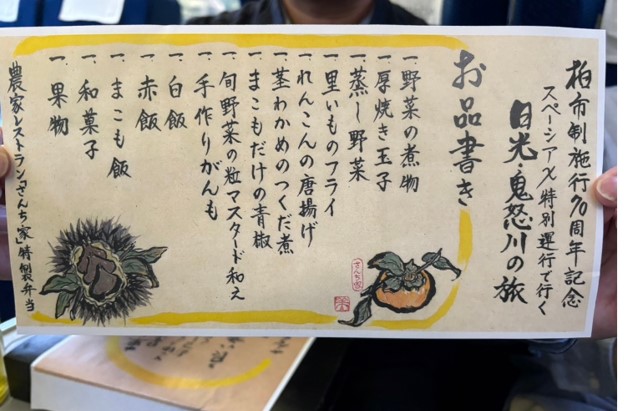 柏市制施行70周年記念
スペーシアX特別運行で行く
日光・鬼怒川の旅
お品書き
一、野菜の煮物
一、厚焼き玉子
一、蒸し野菜
一、里いものフライ
一、れんこんの唐揚げ
一、茎わかめのつくだ煮
一、まこもだけの青椒
一、旬野菜の粒マスタード和え
一、手作りがんも
一、白飯
一、赤飯
一、まこも飯
一、和菓子
一、果物
農家レストラン「さんち家」特製弁当
さんち家